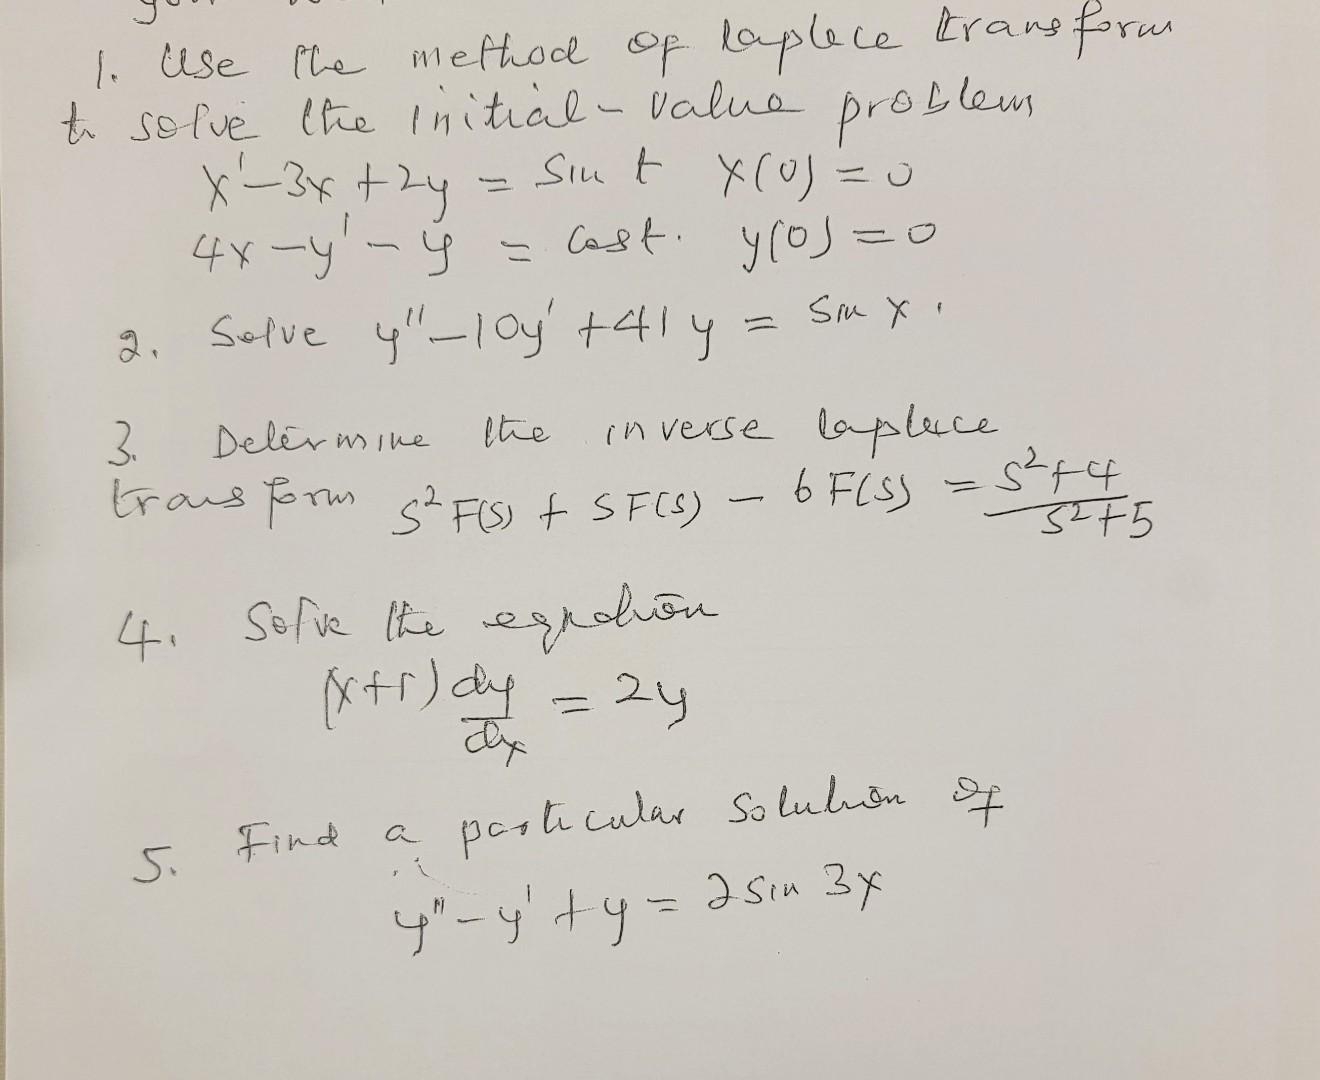 1. Use the method of laplece transform
to solve the initial-value problem
x' - 3x + 2y = sin t x(0) = 0
4x - y' - y = cost. y(0) = 0
2. Solve y'' - 10y' + 41y = sin x.
3. Determine the inverse laplace
transform s²F(s) + sF(s) - 6F(s) = s²+4 / s²+5
4. Solve the equation
(x+1) dy/dx = 2y
5. Find a particular solution of
y'' - y' + y = 2 sin 3x